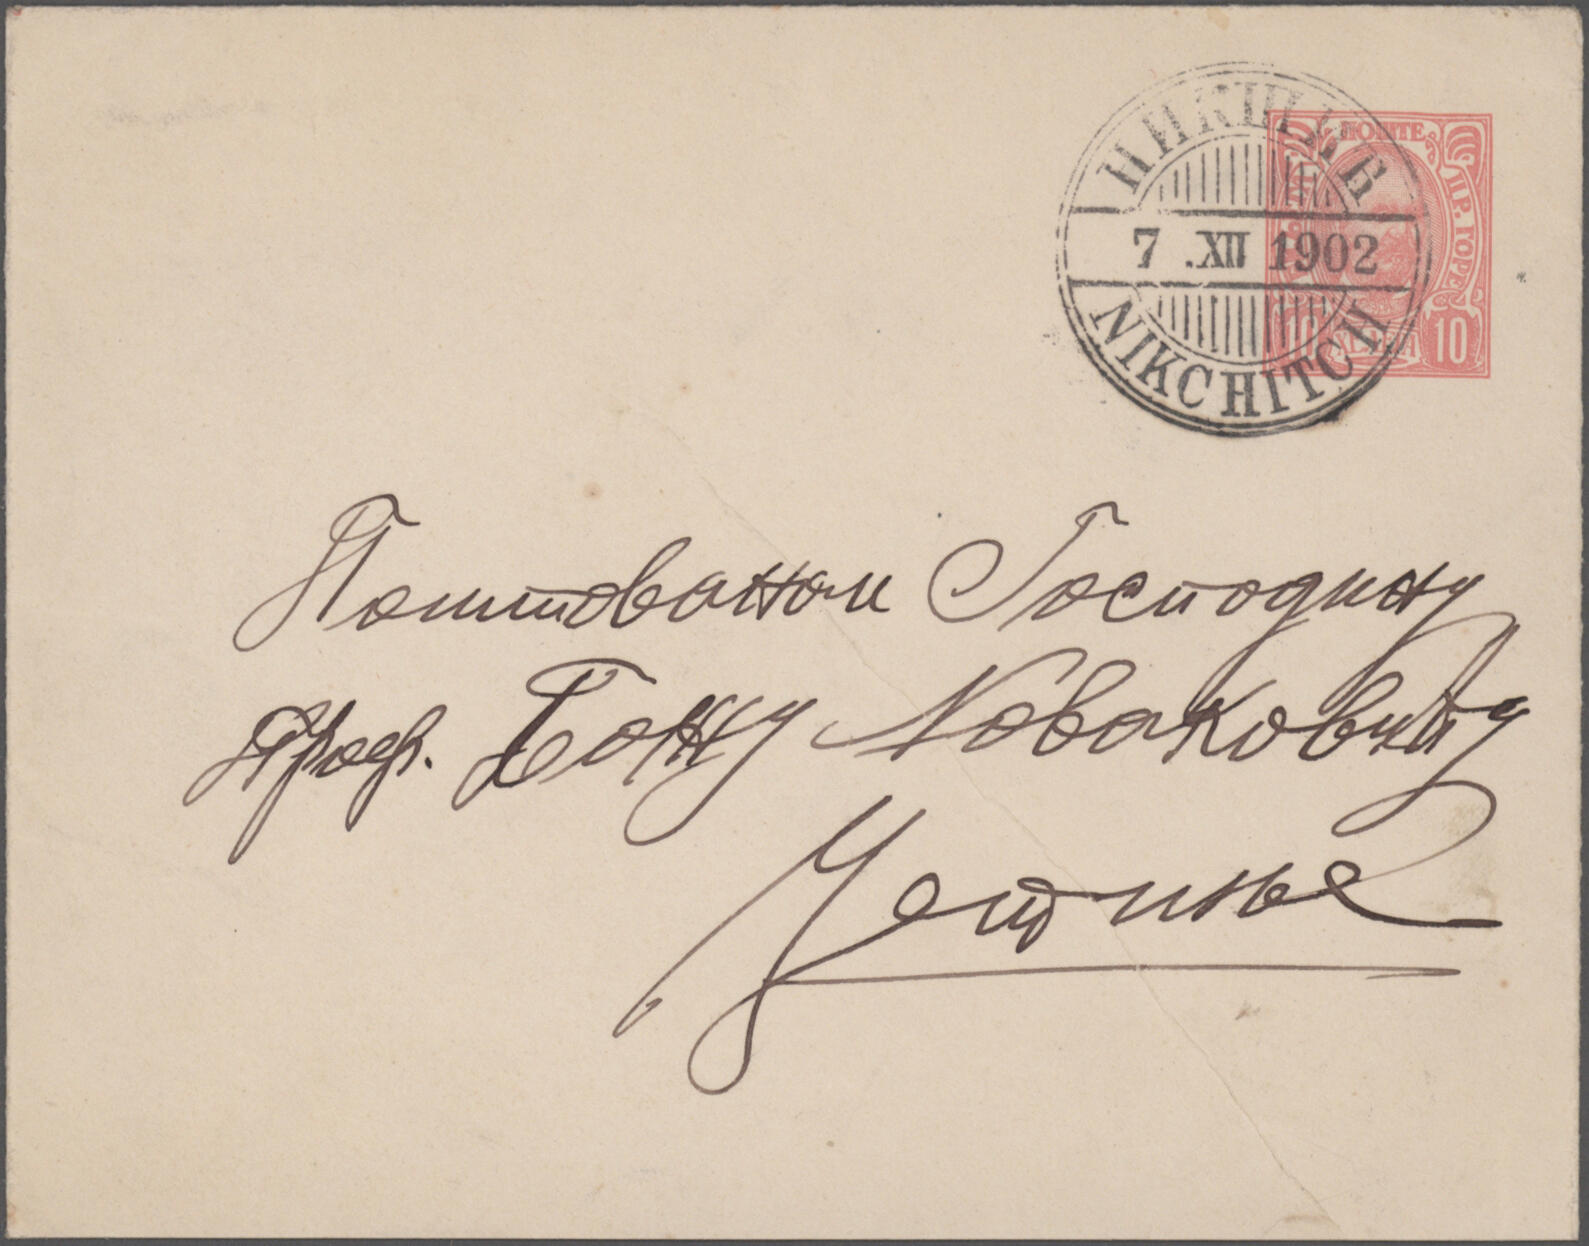 НИКШИЋ
7 .XII 1902
NIKCHITCH
ПОШТЕ
ЦР. ГОРЕ
10
10
Поштованом Господину
Проф. Божу Новаковићу
Цетиње